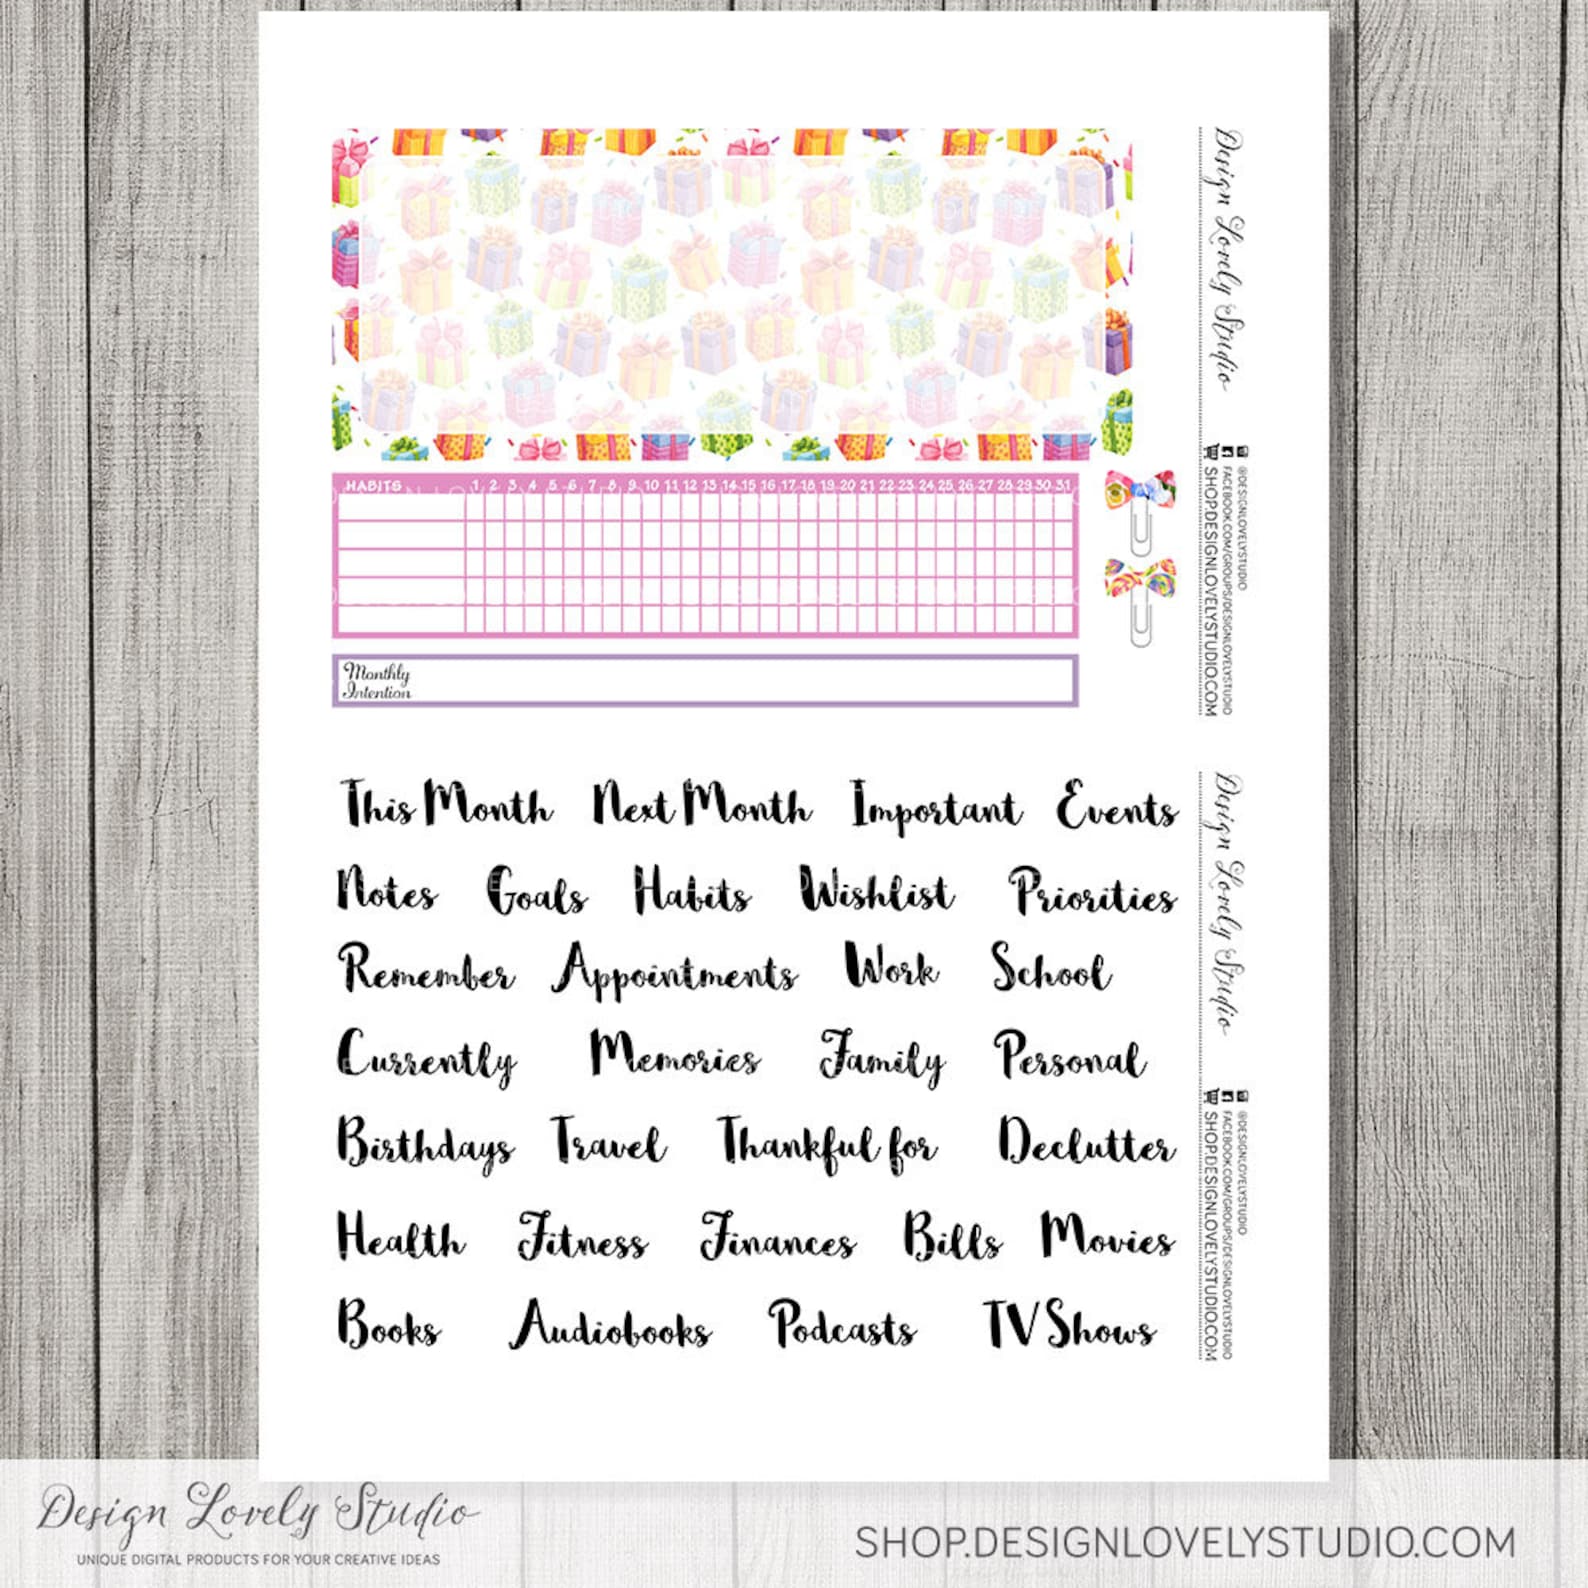 HABITS 1 2 3 4 5 6 7 8 9 10 11 12 13 14 15 16 17 18 19 20 21 22 23 24 25 26 27 28 29 30 31
Monthly
Intention
This Month Next Month Important Events
Notes Goals Habits Wishlist Priorities
Remember Appointments Work School
Currently Memories Family Personal
Birthdays Travel Thankful for Declutter
Health Fitness Finances Bills Movies
Books Audiobooks Podcasts TV Shows
Design Lovely Studio
@DESIGNLOVELYSTUDIO
FACEBOOK.COM/GROUPS/DESIGNLOVELYSTUDIO
SHOP.DESIGNLOVELYSTUDIO.COM
Design Lovely Studio
@DESIGNLOVELYSTUDIO
FACEBOOK.COM/GROUPS/DESIGNLOVELYSTUDIO
SHOP.DESIGNLOVELYSTUDIO.COM
Design Lovely Studio
UNIQUE DIGITAL PRODUCTS FOR YOUR CREATIVE IDEAS
SHOP.DESIGNLOVELYSTUDIO.COM